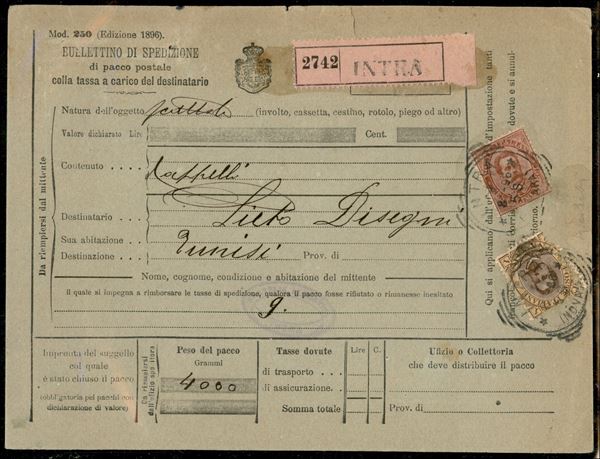 Mod. 250 (Edizione 1896).
BULLETTINO DI SPEDIZIONE
di pacco postale
colla tassa a carico del destinatario
2742 INTRA
Natura dell'oggetto (involto, cassetta, cestino, rotolo, piego od altro)
Valore dichiarato Lire Cent.
Contenuto Cappelli
Destinatario Disegni
Sua abitazione
Destinazione Tunisi Prov. di
Nome, cognome, condizione e abitazione del mittente
il quale si impegna a rimborsare le tasse di spedizione, qualora il pacco fosse rifiutato o rimanesse inesitato
Da riempiersi dal mittente
Impronta del suggello
col quale
è stato chiuso il pacco
(obbligatoria pei pacchi con
dichiarazione di valore)
Da riempiersi
dall'ufizio app.tore
Peso del pacco
Grammi
4000
Tasse dovute
Lire C.
di trasporto
di assicurazione.
Somma totale
Ufizio o Collettoria
che deve distribuire il pacco
Prov. di
Qui si applicano, dall'
d'impostazione tanti
dovute e si annul-